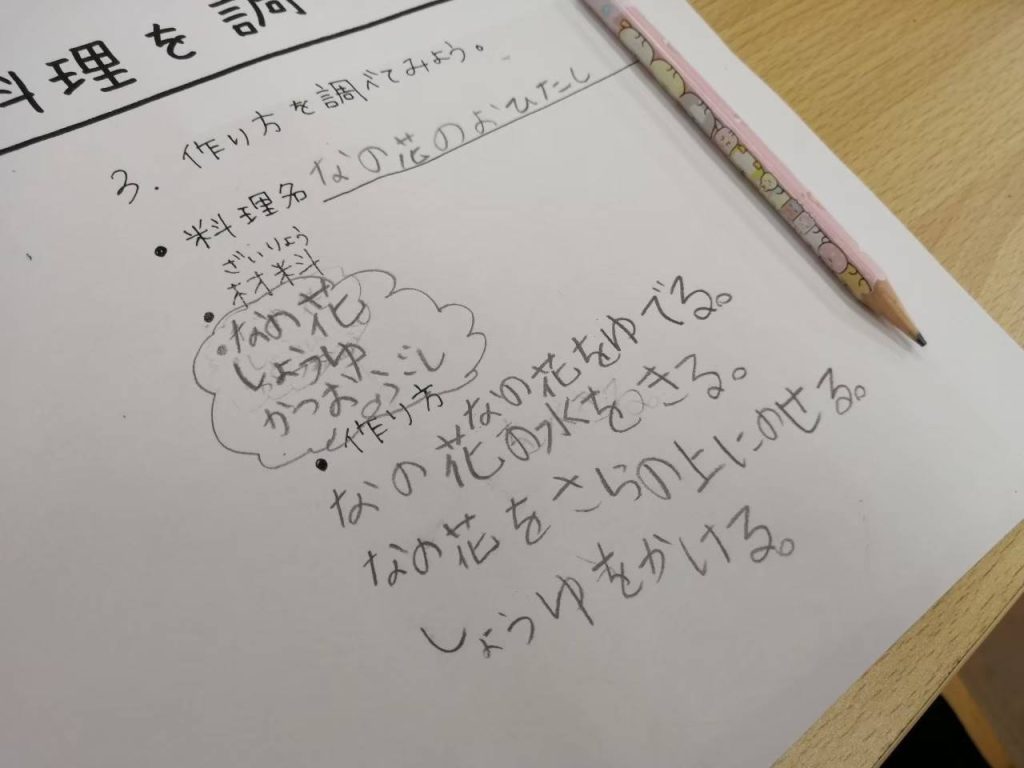 料理を調
3. 作り方を調べてみよう。
• 料理名 なの花のおひたし
ざいりょう
• 材料
なの花
しょうゆ
かつおぶし
• 作り方 なの花をゆでる。
なの花の水をきる。
なの花をさらの上にのせる。
しょうゆをかける。